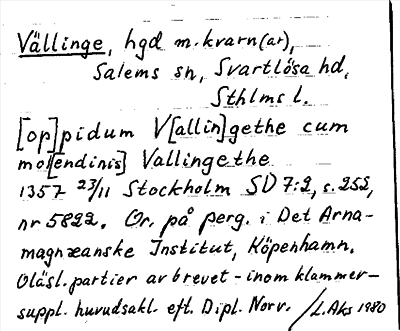 Vällinge, hgd m. kvarn(ar),
Salems sn, Svartlösa hd,
Sthlms l.
[op]pidum V[allin]gethe cum
mol[endinis] Vallingethe
1357 23/11 Stockholm SD 7:2, s. 252,
nr 5822. Or. på perg. i Det Arna-
magnæanske Institut, Köpenhamn.
Oläsl. partier av brevet - inom klammer -
suppl. huvudsakl. eft. Dipl. Norv. /L. Aks 1980